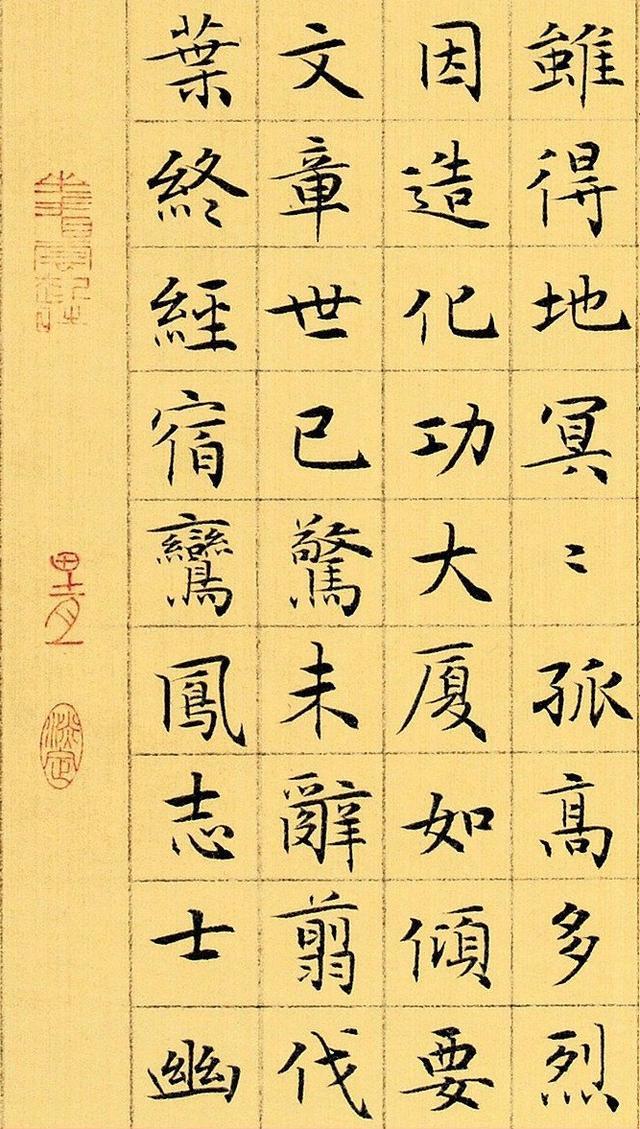 雖得地冥〻孤髙多烈
因造化功大厦如傾要
文章世已驚未辭翦伐
葉終經宿鸞鳳志士幽